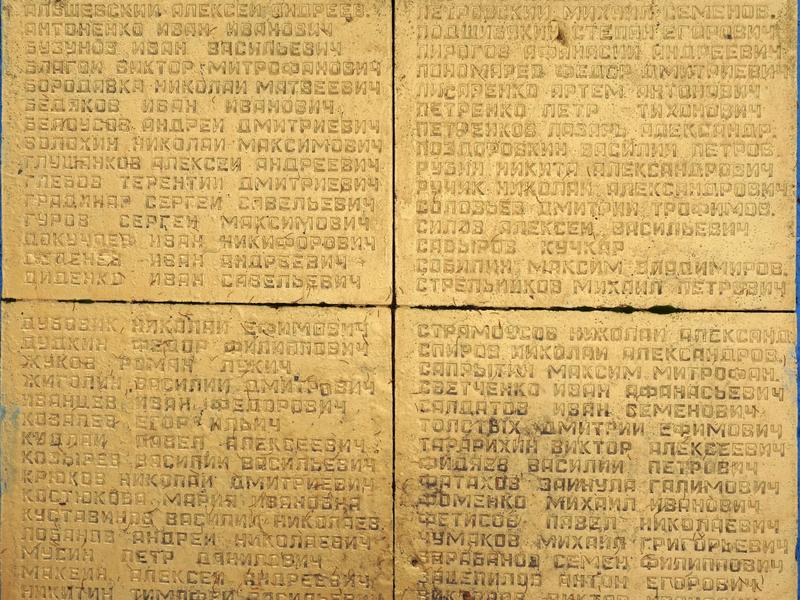 АЛЕКСЕЙ АНДРЕЕВ.
АНТОНЕНКО ИВАН ИВАНОВИЧ
БУЗУНОВ ИВАН ВАСИЛЬЕВИЧ
БЛАГОЙ ВИКТОР МИТРОФАНОВИЧ
БОРОДАВКА НИКОЛАЙ МАТВЕЕВИЧ
БЕДЯКОВ ИВАН ИВАНОВИЧ
БЕЛОУСОВ АНДРЕЙ ДМИТРИЕВИЧ
ВОЛОХИН НИКОЛАЙ МАКСИМОВИЧ
АЛЕКСЕЙ АНДРЕЕВИЧ
ГЛЕБОВ ТЕРЕНТИЙ ДМИТРИЕВИЧ
ГРАДИНАР СЕРГЕЙ САВЕЛЬЕВИЧ
ГУРОВ СЕРГЕЙ МАКСИМОВИЧ
ДОКУЧАЕВ ИВАН НИКИФОРОВИЧ
ИВАН АНДРЕЕВИЧ
ДИДЕНКО ИВАН САВЕЛЬЕВИЧ
ДУБОВИК НИКОЛАЙ ЕФИМОВИЧ
ДУДКИН ФЕДОР ФИЛИППОВИЧ
ЖУКОВ РОМАН ЛУКИЧ
ЖИГОЛИН ВАСИЛИЙ ДМИТРОВИЧ
ИВАНЦЕВ ИВАН ФЕДОРОВИЧ
КОВАЛЕВ ЕГОР ИЛЬИЧ
ПАВЕЛ АЛЕКСЕЕВИЧ
КОЗЫРЕВ ВАСИЛИЙ ВАСИЛЬЕВИЧ
КРЮКОВ НИКОЛАЙ ДМИТРИЕВИЧ
КОСТЮКОВА МАРИЯ ИВАНОВНА
ВАСИЛИЙ НИКОЛАЕВ.
ЛОБАНОВ АНДРЕЙ НИКОЛАЕВИЧ
МУСИН ПЕТР ДАНИЛОВИЧ
АЛЕКСЕЙ АНДРЕЕВИЧ
НИКИТИН ТИМОФЕЙ ВАСИЛЬЕВИЧ
ПЕТРОВСКИЙ МИХАИЛ СЕМЕНОВ.
СТЕПАН ЕГОРОВИЧ
ПИРОГОВ АФАНАСИЙ АНДРЕЕВИЧ
ПОНОМАРЕВ ФЕДОР ДМИТРИЕВИЧ
ПИСАРЕНКО АРТЕМ АНТОНОВИЧ
ПЕТРЕНКО ПЕТР ТИХОНОВИЧ
ПЕТРЕНКОВ ЛАЗАРЬ АЛЕКСАНДР.
ВАСИЛИЙ ПЕТРОВ
РУБИН НИКИТА АЛЕКСАНДРОВИЧ
НИКОЛАЙ АЛЕКСАНДРОВИЧ
СОЛОВЬЕВ ДМИТРИЙ ТРОФИМОВ.
СИЛОВ АЛЕКСЕЙ ВАСИЛЬЕВИЧ
САБЫРОВ КУЧКАР
СОБИЛИН МАКСИМ ВЛАДИМИРОВ.
СТРЕЛЬНИКОВ МИХАИЛ ПЕТРОВИЧ
СТРАМОУСОВ НИКОЛАЙ АЛЕКСАНД.
СПИРОВ НИКОЛАЙ АЛЕКСАНДРОВ.
САПРЫГИН МАКСИМ МИТРОФАН.
СВЕТЧЕНКО ИВАН АФАНАСЬЕВИЧ
САЛДАТОВ ИВАН СЕМЕНОВИЧ
ТОЛСТЫХ ДМИТРИЙ ЕФИМОВИЧ
ТАРАРИХИН ВИКТОР АЛЕКСЕЕВИЧ
ФИДЯЕВ ВАСИЛИЙ ПЕТРОВИЧ
ФАТАХОВ ЗАИНУЛА ГАЛИМОВИЧ
ФОМЕНКО МИХАИЛ ИВАНОВИЧ
ФЕТИСОВ ПАВЕЛ НИКОЛАЕВИЧ
ЧУМАКОВ МИХАИЛ ГРИГОРЬЕВИЧ
СЕМЕН ФИЛИППОВИЧ
ЗАЦЕПИЛОВ АНТОН ЕГОРОВИЧ
ВИКТОР